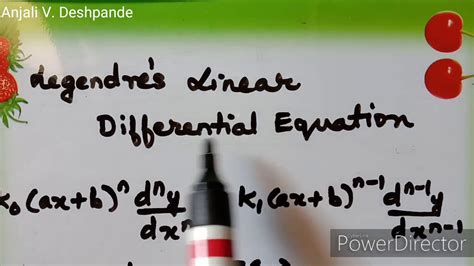 Anjali V. Deshpande
Legendre's Linear
Differential Equation
K₀(ax+b)ⁿ dⁿy/dxⁿ K₁(ax+b)ⁿ⁻¹ dⁿ⁻¹y/dxⁿ⁻¹
PowerDirector